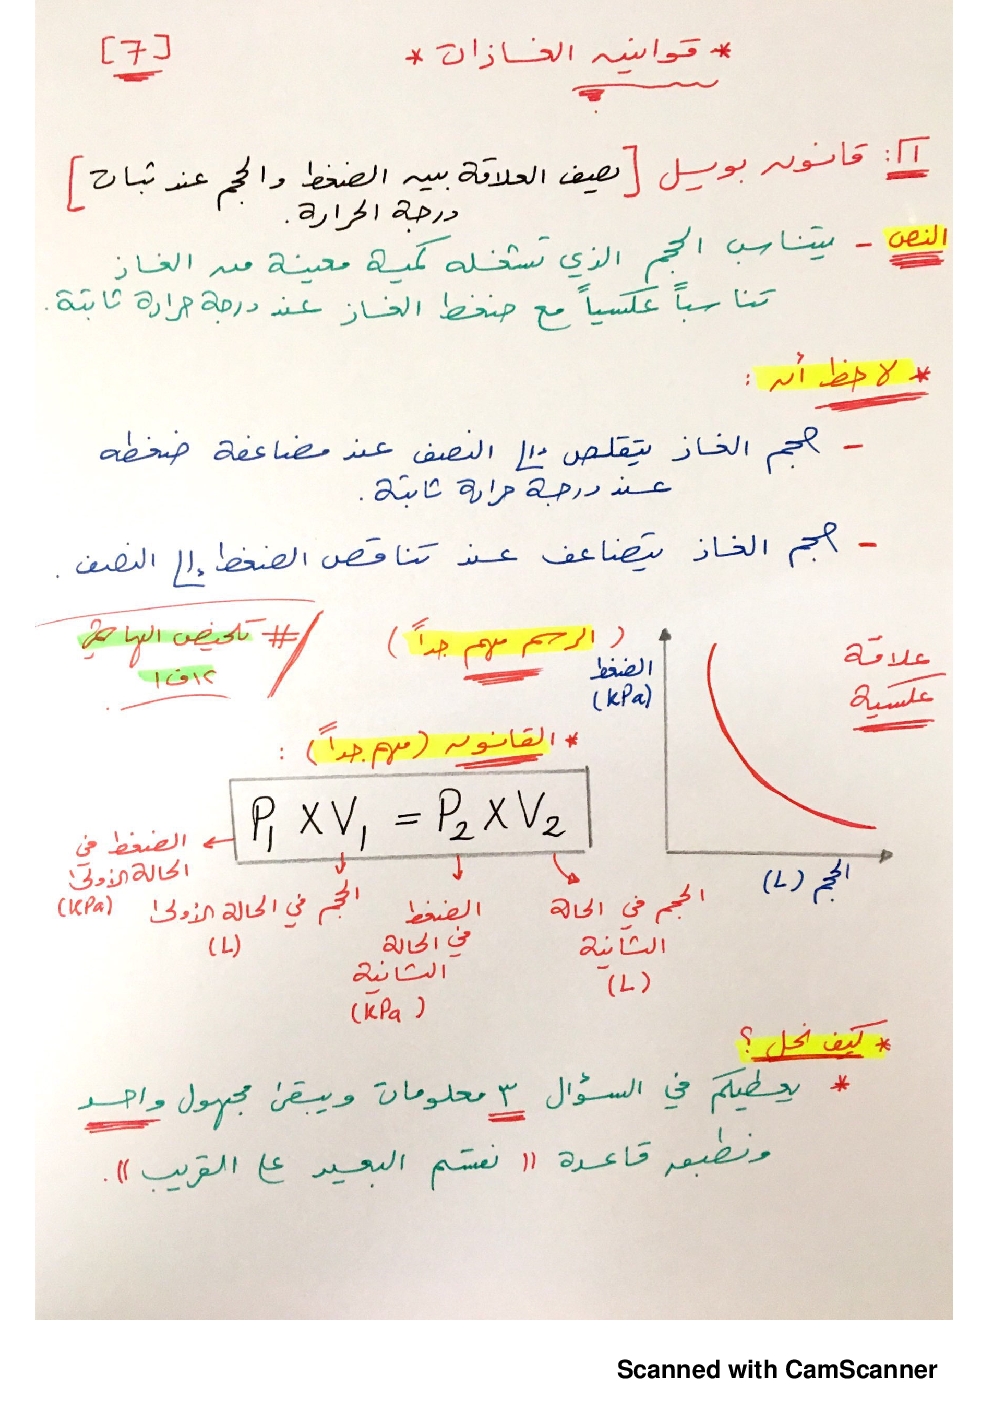 * قوانين الغازات *
[7]
١: قانون بويل [يصف العلاقة بين الضغط والحجم عند ثبات
درجة الحرارة.]
النص - يتناسب الحجم الذي تشغله كمية معينة من الغاز
تناسباً عكسياً مع ضغط الغاز عند درجة حرارة ثابتة.
* لاحظ أن :
- حجم الغاز يتقلص إلى النصف عند مضاعفة ضغطه
عند درجة حرارة ثابتة .
- حجم الغاز يتضاعف عند تناقص الضغط إلى النصف .
# تلخيص
١٢ف١
(الرسم مهم جداً)
الضغط
(kPa)
علاقة
عكسية
الحجم (L)
* القانون (مهم جداً) :
P₁ X V₁ = P₂ X V₂
الضغط في
الحالة الأولى
(kPa)
الحجم في الحالة الأولى
(L)
الضغط
في الحالة
الثانية
(kPa)
الحجم في الحالة
الثانية
(L)
* كيف نحل ؟
* يعطيكم في السؤال ٣ معلومات ويبقى مجهول واحد
ونطبق قاعدة (( نقسم البعيد على القريب )).
Scanned with CamScanner